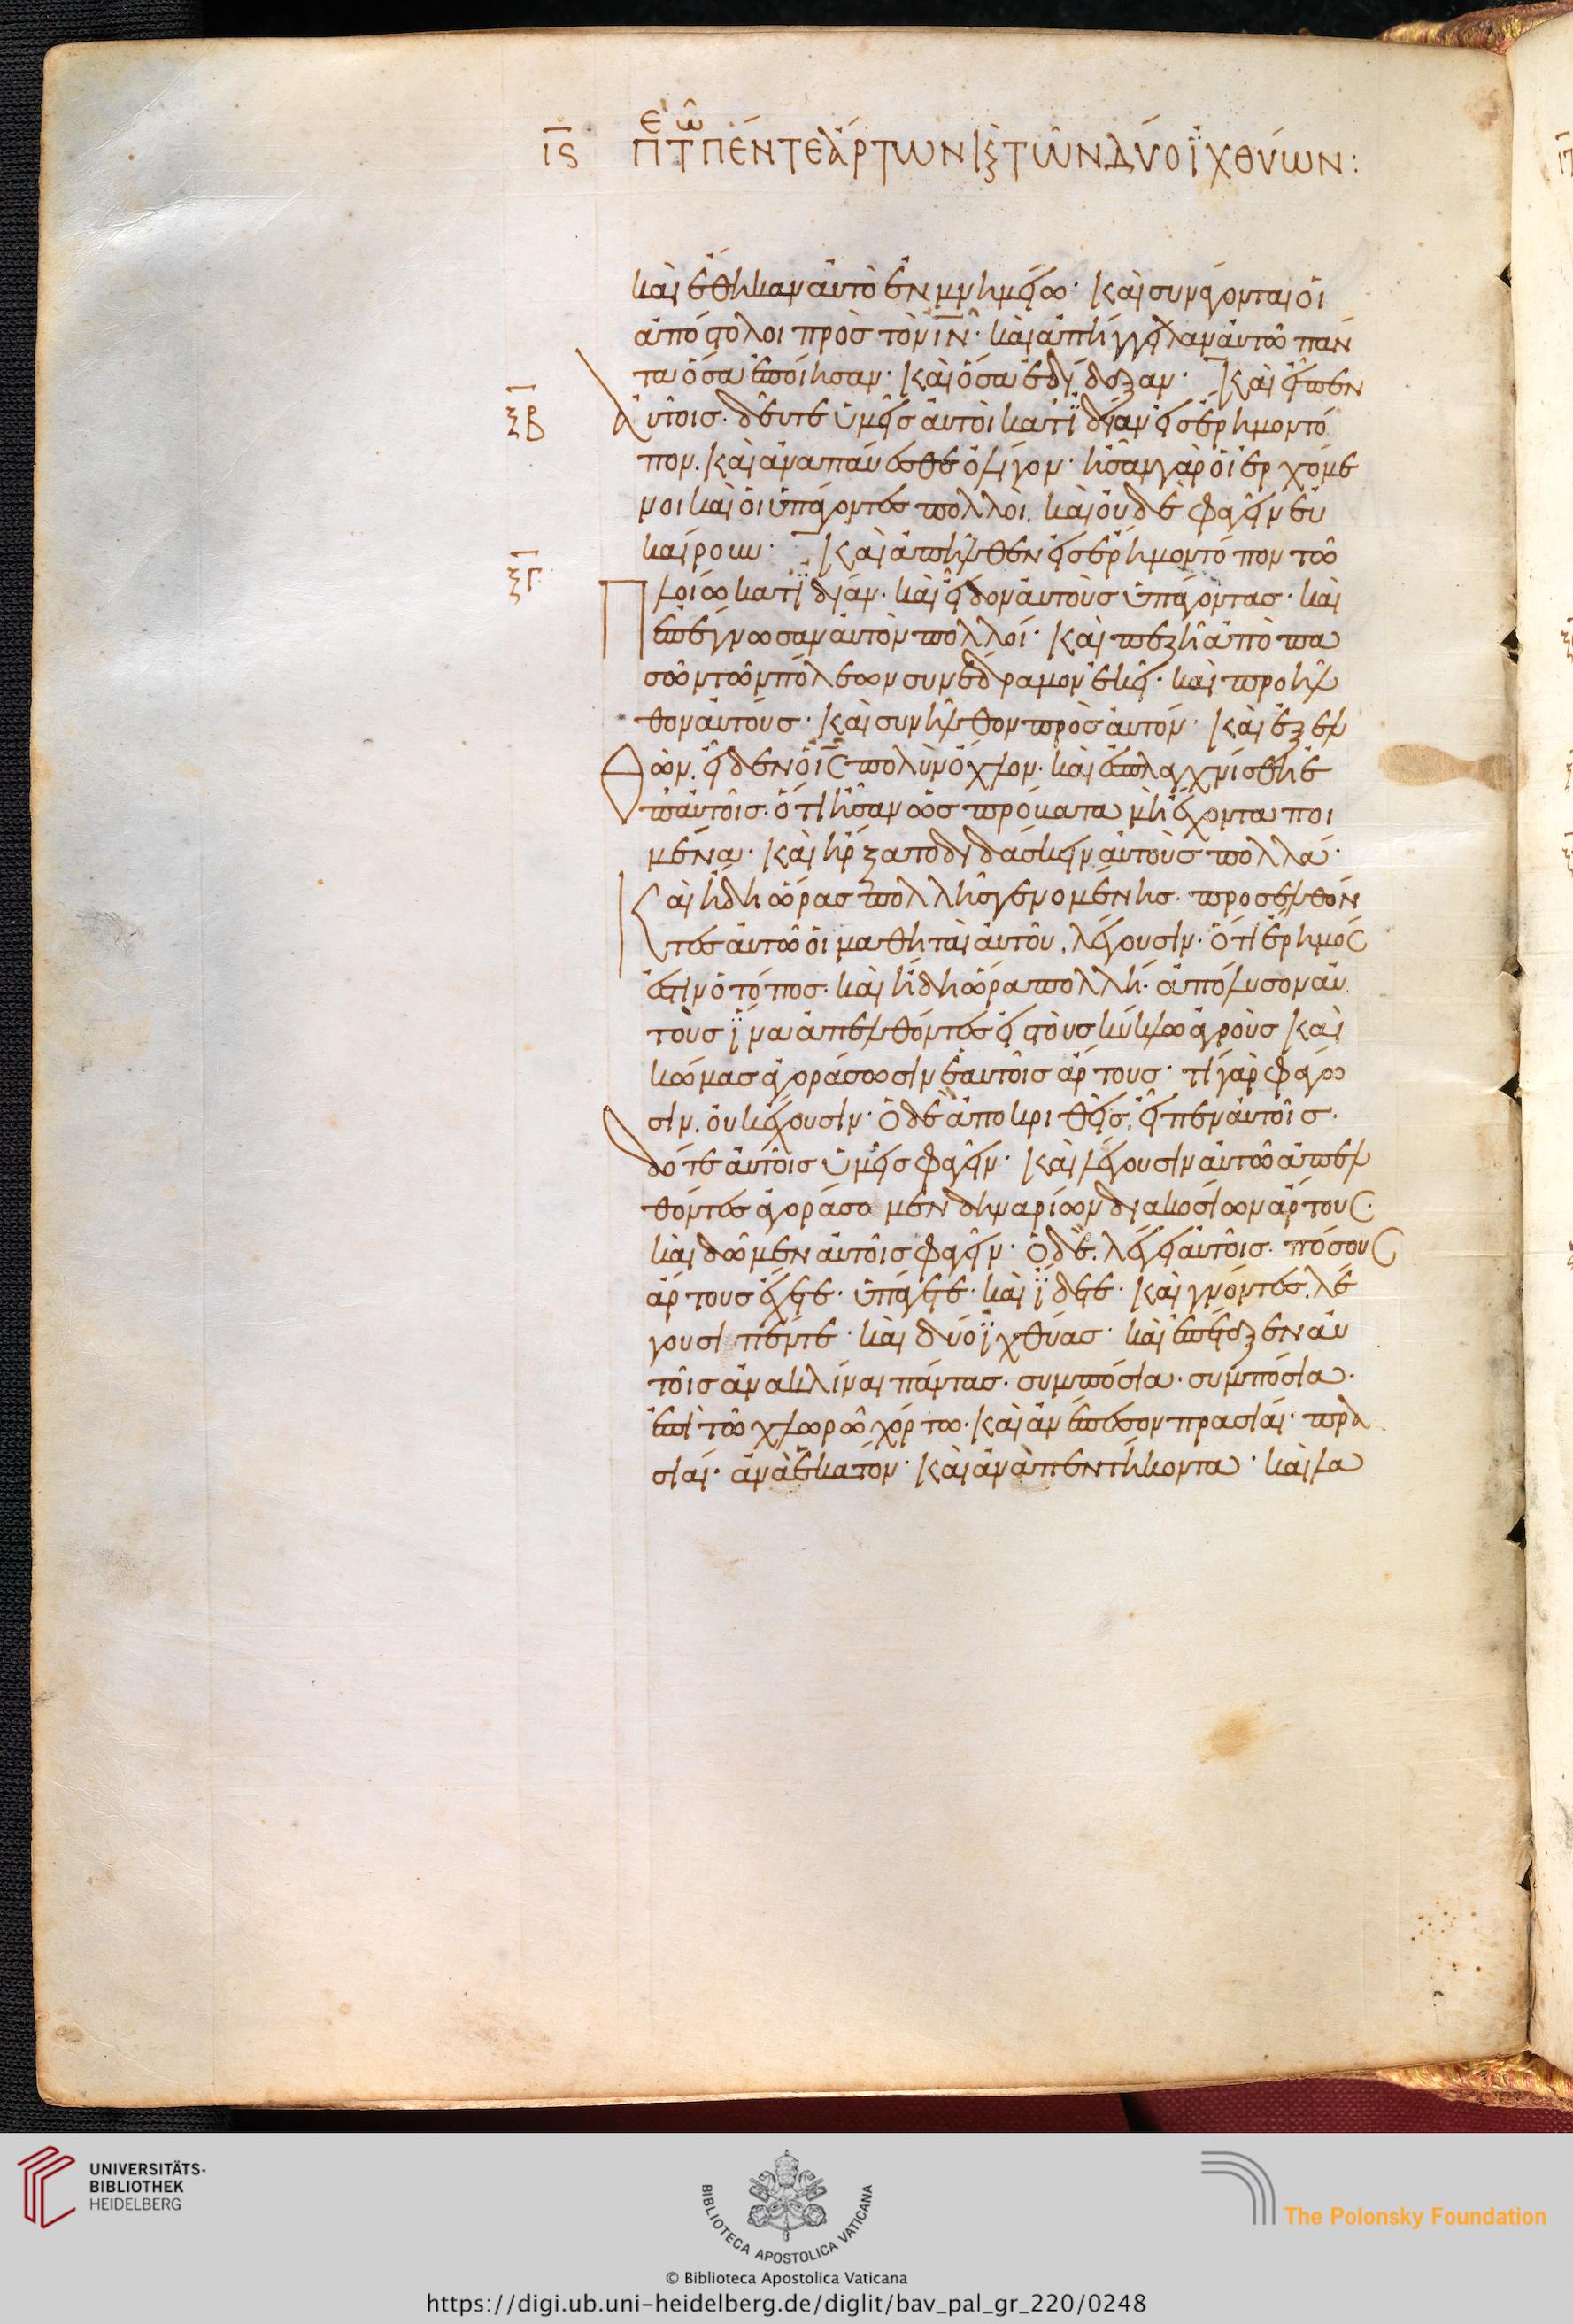 ις περὶ τῶν πέντε ἄρτων καὶ τῶν δύο ἰχθύων:
καὶ ἔθηκαν αὐτὸ ἐν μνημείω· Καὶ συνάγονται οἱ
ἀπόστολοι πρὸς τὸν ιν· καὶ ἀπήγγειλαν αὐτῶ πάν
τα ὅσα ἐποίησαν· Καὶ ὅσα ἐδίδαξαν· Καὶ εἶπεν
ξβ Αὐτοῖς· δεῦτε ὑμεῖς αὐτοὶ κατϊδίαν εἰς ἔρημον τό
πον. Καὶ ἀναπαύεσθε ὀλίγον· ἦσαν γὰρ οἱ ερχόμε
νοι καὶ οἱ ὑπάγοντες πολλοὶ. καὶ οὐδὲ φαγεῖν εὐ
καίρουν· Καὶ ἀπῆλθεν εἰς ἔρημον τόπον τῶ
ξγ Πλοίω κατϊδίαν· καὶ εἶδον αὐτοὺς ὑπάγοντας· καὶ
ἐπέγνωσαν αὐτὸν πολλοί· Καὶ πεζῆ ἀπὸ πα
σῶν τῶν πόλεων συνέδραμον ἐκεῖ· καὶ προῆλ
θον αὐτούς· Καὶ συνῆλθον πρὸς αὐτόν· Καὶ ἐξελ
Θὼν. εἶδεν ὁ ις πολὺν ὄχλον· καὶ ἐσπλαγχνίσθη ἐ
π' αὐτοῖς· ὅτι ἦσαν ὡς πρόβατα μὴ ἔχοντα ποι
μένα· Καὶ ἤρξατο διδάσκειν αὐτοὺς πολλά·
Καὶ ἤδη ὥρας πολλῆς γενομένης· προσελθόν
τες αὐτῶ οἱ μαθηταὶ αὐτοῦ. λέγουσιν· Ὅτι ἔρημος
ἐστιν ὁ τόπος· καὶ ἤδη ὥρα πολλή· ἀπόλυσον αὐ
τοὺς ἵνα ἀπελθόντες εἰς τοὺς κύκλω ἀγροὺς Καὶ
κώμας ἀγοράσωσιν ἑαυτοῖς ἄρτους· τί γὰρ φάγω
σιν. οὐκ ἔχουσιν· Ὁ δὲ ἀποκριθεὶς. εἶπεν αὐτοῖς·
δότε αὐτοῖς ὑμεῖς φαγεῖν· Καὶ λέγουσιν αὐτῶ ἀπελ
θόντες ἀγοράσομεν δηναρίων διακοσίων ἄρτους·
καὶ δῶμεν αὐτοῖς φαγεῖν· Ὁ δὲ. λέγει αὐτοῖς· πόσους
ἄρτους ἔχετε· ὑπάγετε· καὶ ἴδετε· Καὶ γνόντες. λέ
γουσι πέντε· καὶ δύο ϊχθύας· καὶ ἐπέταξεν αὐ
τοῖς ἀνακλίναι πάντας· συμπόσια· συμπόσια·
ἐπὶ τῶ χλωρῶ χόρτω· Καὶ ἀνέπεσον πρασιαί· πρα
σιαί· ἀνὰ ἑκατόν· Καὶ ἀνὰ πεντήκοντα· καὶ λα
UNIVERSITÄTS-
BIBLIOTHEK
HEIDELBERG
BIBLIOTECA APOSTOLICA VATICANA
The Polonsky Foundation
© Biblioteca Apostolica Vaticana
https://digi.ub.uni-heidelberg.de/diglit/bav_pal_gr_220/0248